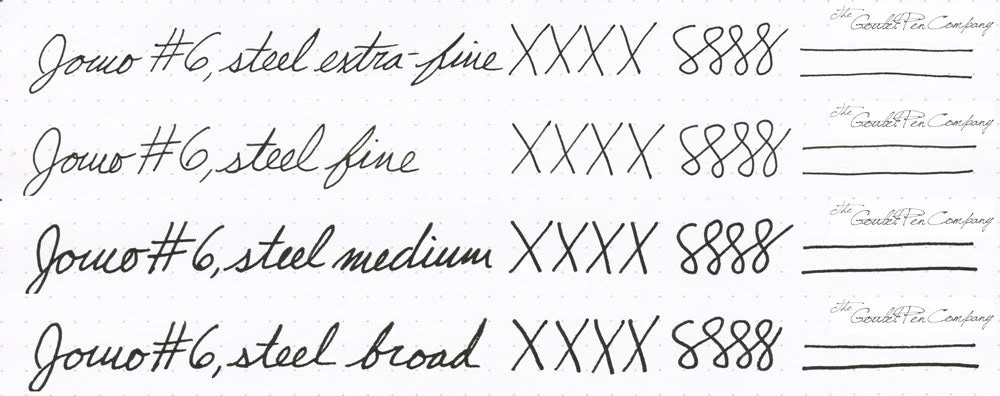 Jowo #6, steel extra-fine XXXX 8888 The Goulet Pen Company
Jowo #6, steel fine XXXX 8888 The Goulet Pen Company
Jowo #6, steel medium XXXX 8888 The Goulet Pen Company
Jowo #6, steel broad XXXX 8888 The Goulet Pen Company